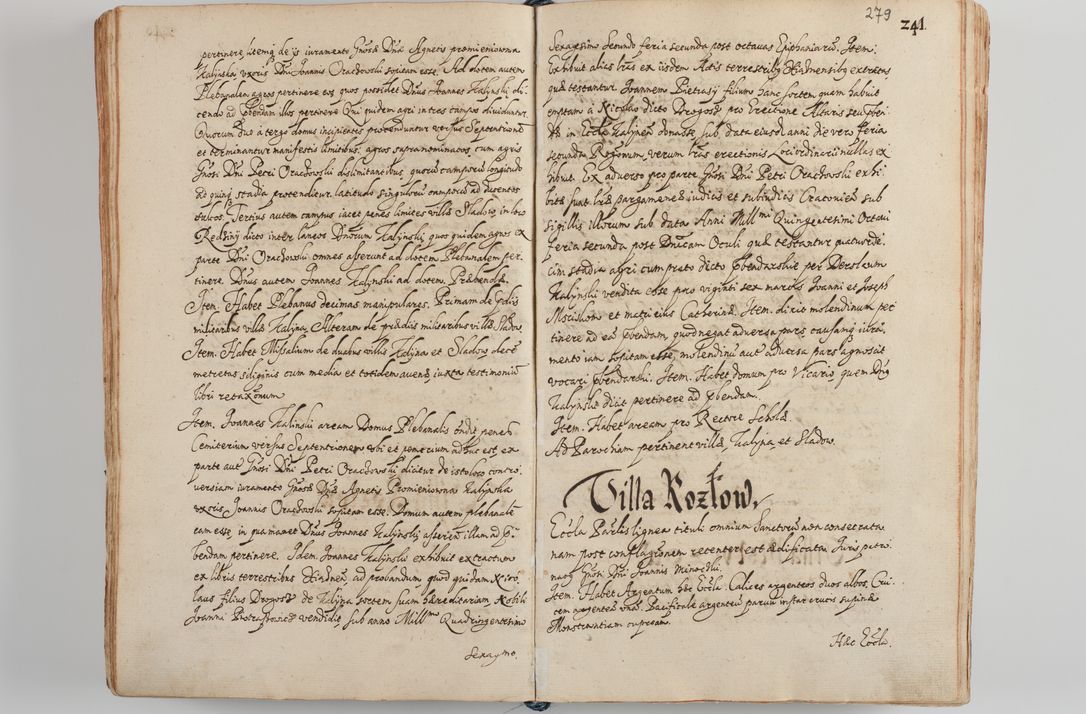 pertinere, litemq de ijs iuramento Gnosæ Dnæ Agnetis promieniowna
Kalÿnskaj Uxoris Dni Joannis Oraczowski sopitam esse. Ad dotem autem
Plebanalem agros pertinere eos quos possidet Dnus Joannes Kalÿnski di-
cendo ad præbendam illos pertinere Qui quidem agri in tres campos diuiduntur.
Quorum duo à tergo domus incipientes protenduntur versus Septentrionē
et terminantur manifestis limitibus: agros supranominatos cum agris
Gnosi Dni Petri Oraczowski dislimitantibus, quorū camporū longitudo
ad quinq stadia protenditur. latitudo singulorū camporū ad ducentos
sulcos. Tertius autem campus iacet penes limites villæ Sladow in loco
Redziny dicto inter laneos Dnorum Kalÿnskij quos quidem agros ex
parte Dni Oraczowski omnes asserunt ad dotem Plebanalem per-
tinere. Dnus autem Joannes Kalÿnski ad dotem Præbendæ.
Item. Habet Plebanus decimas manipulares. Primam de prædijs
militaribus villæ Kalÿna, Alteram de prædijs militaribus villæ Sladow.
Item. Habet Missalium de duabus villis Kalÿna et Sladow decē
metretas siliginis cum media et totidem auenæ, iuxta testimoniū
libri retaxonum
Item. Joannes Kalinskii aream Domus Plebanalis ōndit penes
Cemiterium versus Septentrionem vbi et pomerium adhuc est, ex
parte autē Gnosi Dni Petri Oraczowski dicitur de isto loco contro-
uersiam iuramento Gnosæ Dnæ Agnetis Promieniowna Kalÿnska
uxoris Joannis Oraczowski sopitam esse. Domum autem plebanalē
eam esse, in qua manet Dnus Joannes Kalÿnskij asserēn illam ad præ-
bendam pertinere. Idem. Joannes Kalÿnskii exhibuit extractum
ex libris terrestribus Xiænsēn, ad probandum quod quidam Nico-
laus filius Drogosz de Kalÿna sortem suam hæreditariam, Nobili
Joanni vendidit sub anno Mill mo Quadringentesimo
Sexagmo.
279
241.
Sexagesimo Secundo feria secunda post octauas Epiphaniarū. Item.
Exhibuit alias lrās ex iisdem Actis terrestribq Xiæznensibq extractas
quæ testantur Joannem Pietraszÿ filium hanc sortem quam habuit
emptam à Nicolao dicto Drogosz pro Erectione Altaris seu Præben-
dæ in Eccla Kalÿnen donasse, sub data eiusdē anni die vero feria
secunda Rogonum, verum lrās erectionis Loci ordinarii nullas ex-
hibuit. Ex aduerso pro parte Gnosi Dni Petri Oraczowski exhi-
bitæ sunt lræ pargameneæ iudicis et subiudicis Cracouien sub
sigillis illorum sub data Anni Mill mi Quingentesimi Octaui
feria secunda post Dnicam Oculi quæ testantur quatuorde-
cim stadia agri cum prato dicto præbendarskie per Derslaum
Kalÿnskii vendita esse pro viginti sex marcis Joanni et Joseph
et matri eius Catherinæ. Item. dicit molendinum per
tinere ad eā præbendam, quod negat aduersa pars causamq iura-
mento iam sopitam esse, molendinū autē aduersa pars agnoscit
vocari præbendarski. Item. Habet domum pro Vicario, quem Dnus
Kalÿnski dicit pertinere ad præbendam.
Item. Habet aream pro Rectore Scholæ.
Ad Parochiam pertinent villæ, Kalÿna, et Sladow.
Villa Kozłow.
Eccla Paroālis lignea tituli omnium Sanctorū non consecrata
nam post conflagronem recenter est ædificata, Juris patro-
natq Gnosi Dni Joannis Minoczki.
Item. Habet Argentum hæc Eccla. Calices argenteos duos albos, Cru-
cem argenteā vnā, Pacificale argenteū paruum instar crucis supinæ
Monstrantiam cupream.
Hæc Eccla.